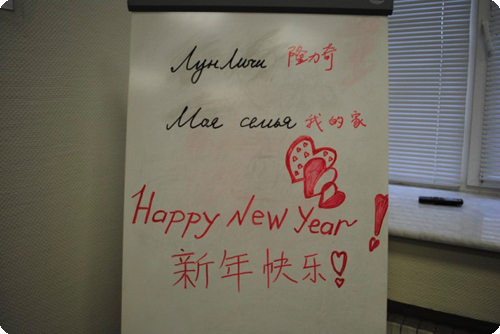 ЛунЛичи 隆力奇
Моя семья 我的家
Happy New Year!
新年快乐!